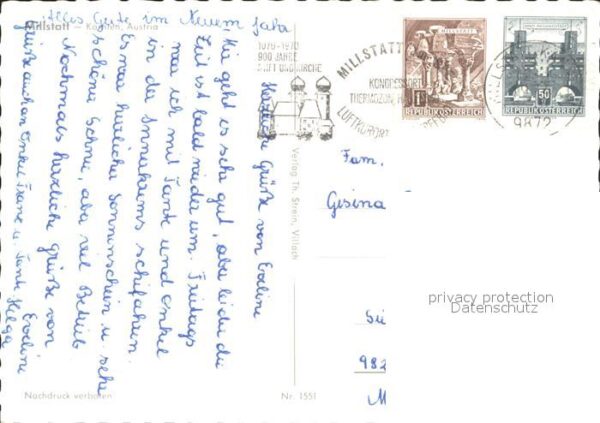 Alles Gute im Neuen Jahr
Millstatt - Kärnten, Austria
Mir geht es sehr gut, aber leider die
Zeit ist bald wieder um. Freitags
war ich mit Tante und Onkel
in der Innakrems schifahren.
Es war herrlicher Sonnenschein u. sehr
schöner Schnee, aber viel Betrieb
Nochmals herzliche Grüße von
Eveline
Grüße auch an Onkel Franz u. Tante Helga
Herzliche Grüße von Eveline
Nachdruck verboten
Verlag Th. Strein, Villach
Nr. 1551
1070-1970
900 JAHRE
STIFT UND KIRCHE
MILLSTATT
KONGRESSORT
LUFTKURORT
MILLSTATT
REPUBLIK ÖSTERREICH
50
REPUBLIK ÖSTERREICH
9872
Fam.
Gesina
982
privacy protection
Datenschutz